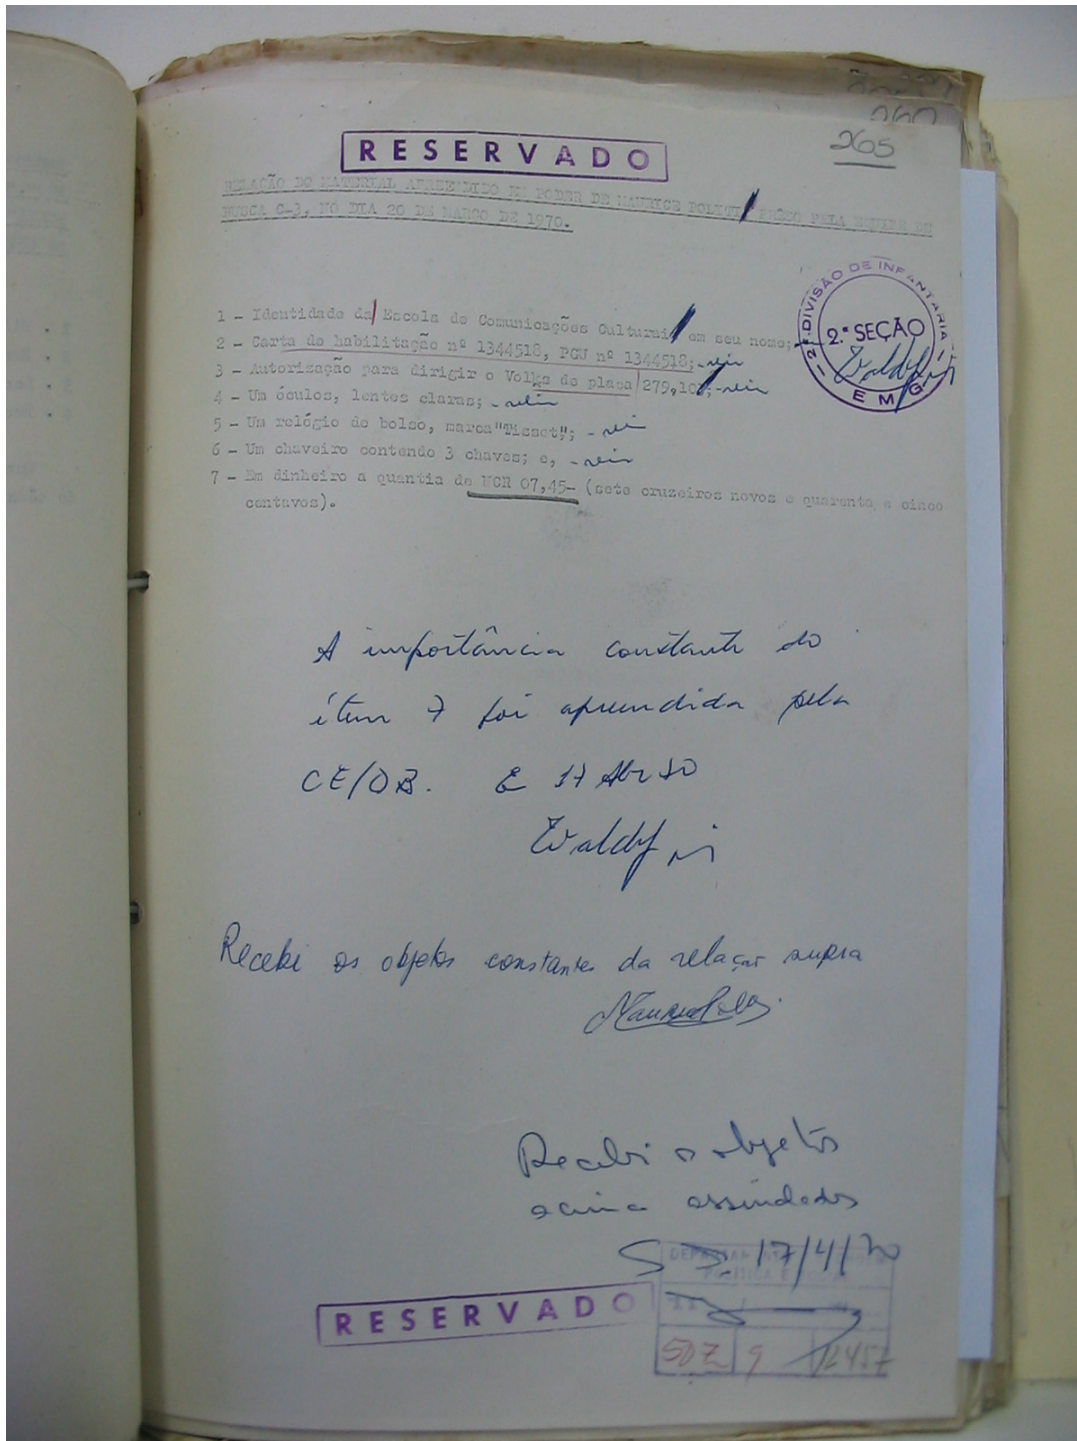 265
RESERVADO
RELAÇÃO DO MATERIAL APREENDIDO EM PODER DE MAURICE POLITI PRÊSO PELA EQUIPE DE
BUSCA C-3, NO DIA 20 DE MARÇO DE 1970.
2ª DIVISÃO DE INFANTARIA
2.ª SEÇÃO
EMG
1 - Identidade da Escola de Comunicações Culturais em seu nome;
2 - Carta de habilitação nº 1344518, PGU nº 1344518;
3 - Autorização para dirigir o Volks de placa 279,10
4 - Um óculos, lentes claras;
5 - Um relógio de bolso, marca "Tisset";
6 - Um chaveiro contendo 3 chaves; e,
7 - Em dinheiro a quantia de NCR 07,45- (sete cruzeiros novos e quarenta e cinco
centavos).
A importância constante do
ítem 7 foi apreendida pela
CE/OB. E 17 Abr 70
Recebi os objetos constantes da relação supra
Recebi o objetos
acima assinalados
17/4/70
RESERVADO
50Z 9